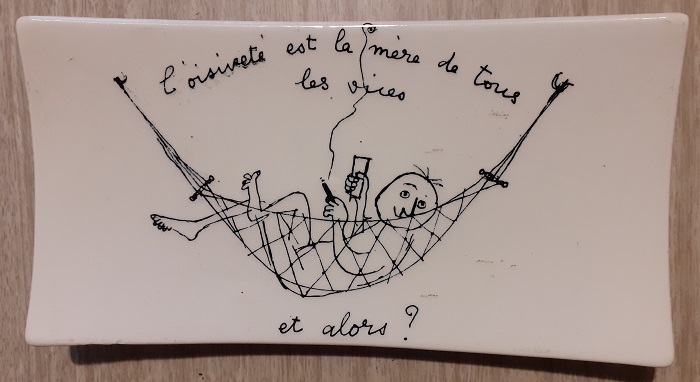 l'oisiveté est la mère de tous
les vices
et alors ?